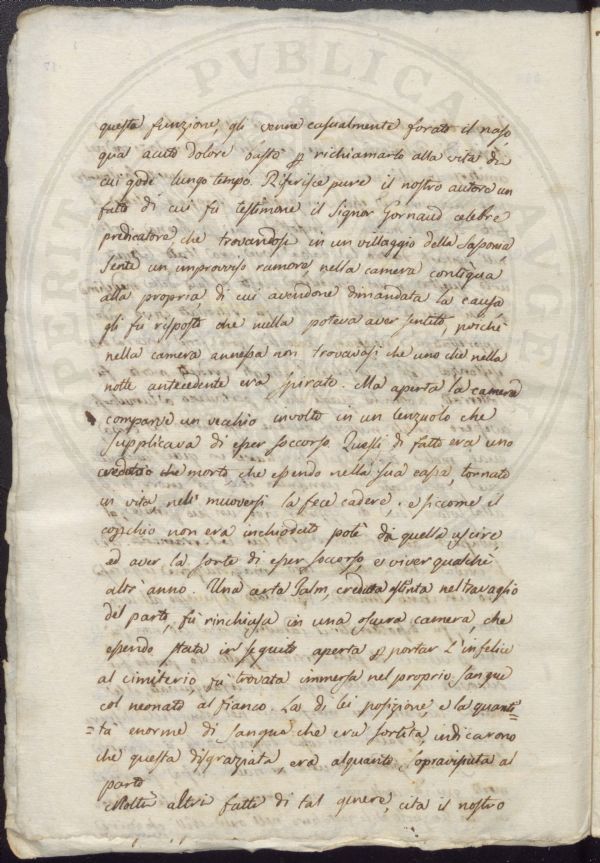 PERUSIA AUGUSTA
PUBLICA
questa funzione, gli venne casualmente forato il naso,
qual acuto dolore bastò p richiamarlo alla vita di
cui godè lungo tempo. Riferisce pure il nostro autore un
fatto di cui fù testimone il Signor Gornaud celebre
predicatore, che trovandosi in un villaggio della Sassonia
sente un improvviso rumore nella camera contigua
alla propria, di cui avendone dimandata la causa
gli fù risposto che nulla poteva aver sentito, poichè
nella camera annessa non trovavasi che uno che nella
notte antecedente era spirato. Ma aperta la camera
comparve un vecchio involto in un lenzuolo che
supplicava di esser soccorso. Quelli di fatto era uno
creduto morto, che essendo nella sua cassa, tornato
in vita nell' muoversi la fece cadere, e siccome il
coperchio non era inchiodato potè da quella uscire,
ed aver la sorte di esser soccorso, e viver qualche
altr' anno. Una certa Palm, creduta estinta nel travaglio
del parto, fù rinchiusa in una oscura camera, che
essendo stata in seguito aperta p portar l'infelice
al cimiterio, fù trovata immersa nel proprio sangue
col neonato al fianco. La di lei posizione, e la quanti=
=tà enorme di sangue che era sortita, indicarono
che questa disgraziata, era alquanto sopravissuta al
parto
Molti altri fatti di tal genere, cita il nostro